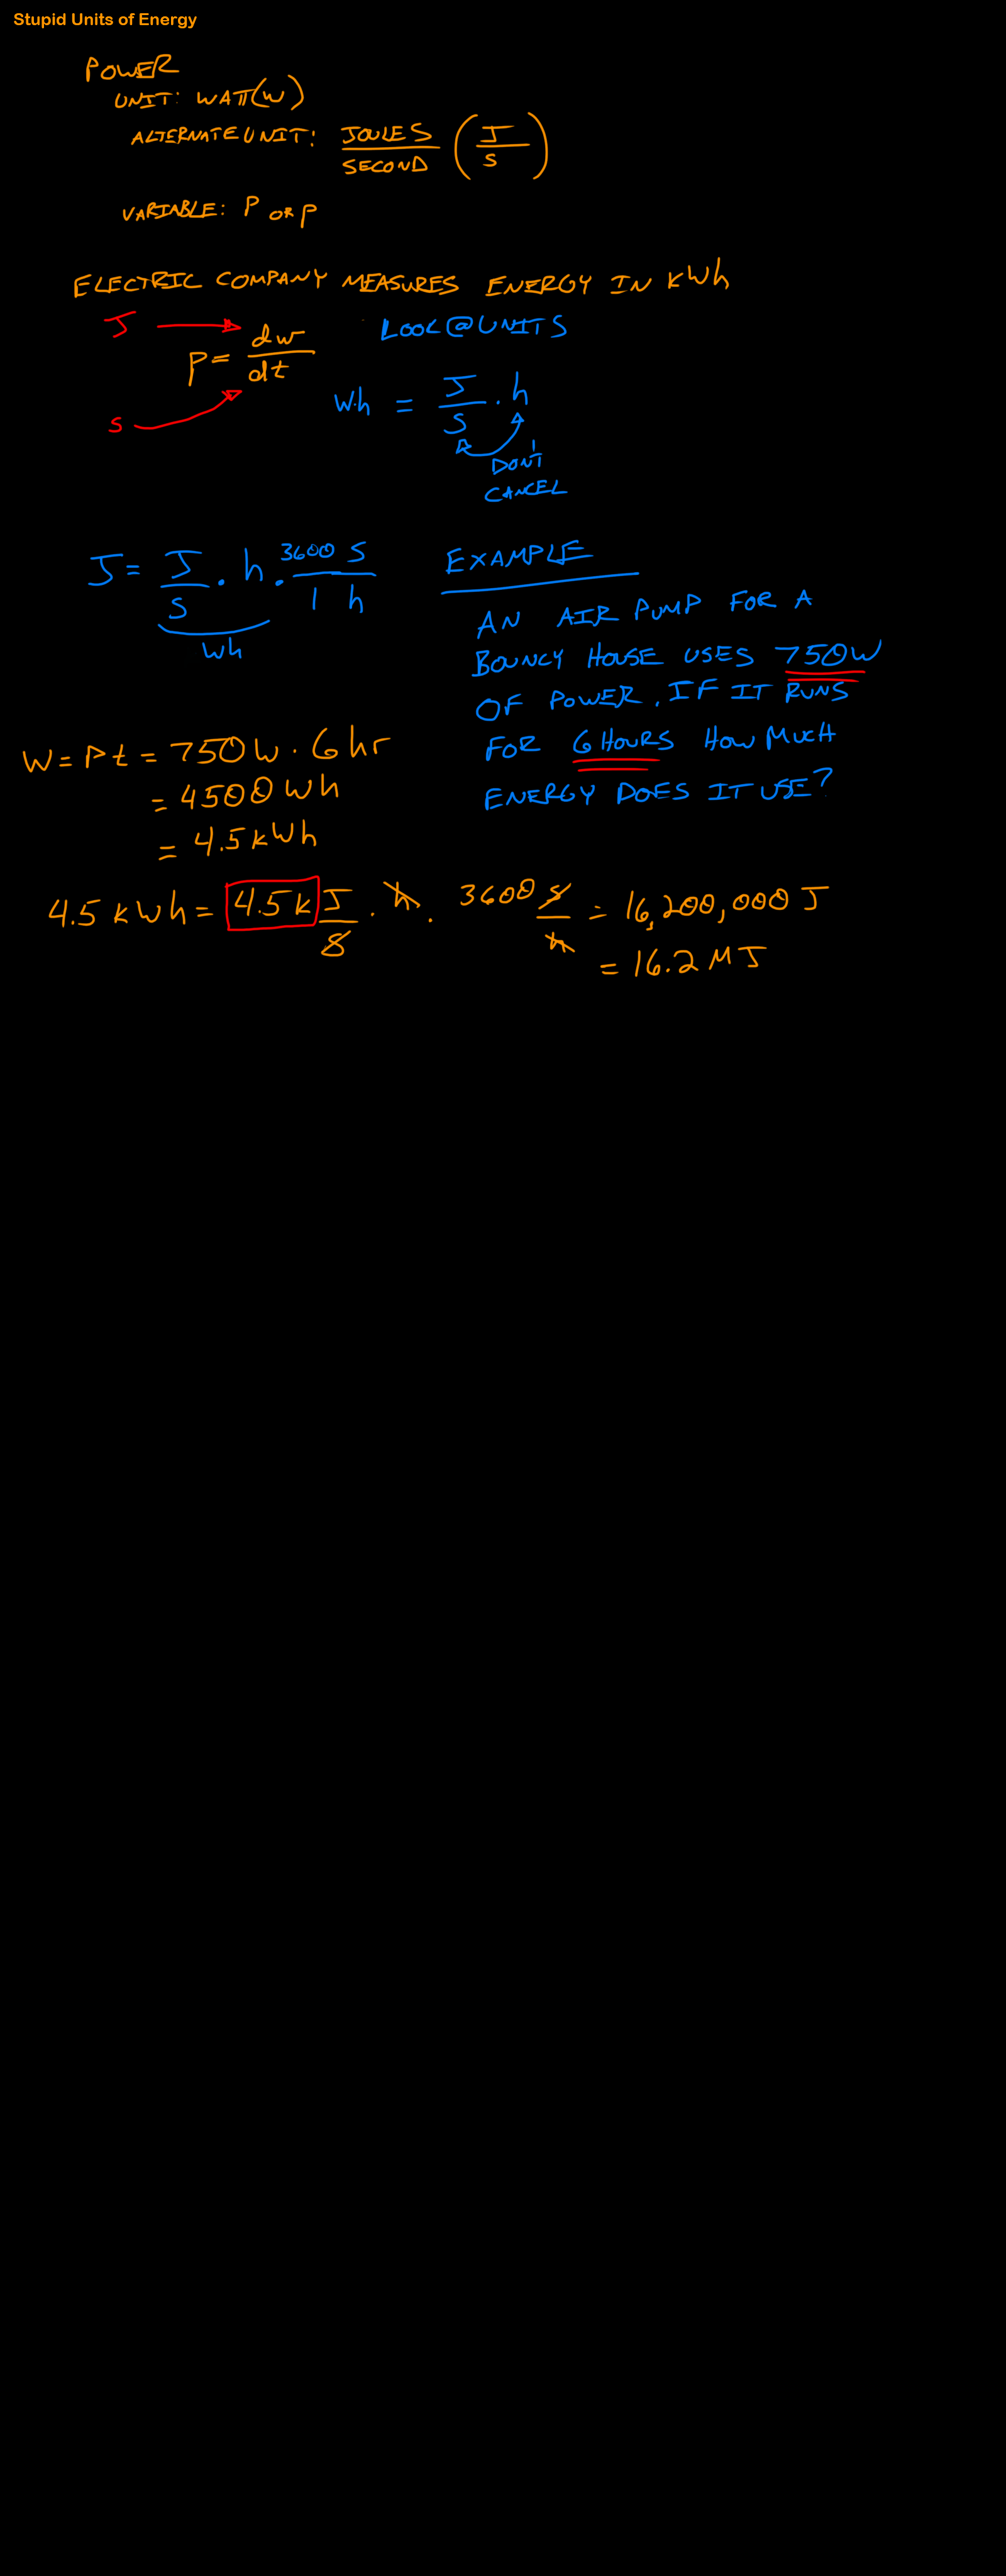 Stupid Units of Energy
POWER
UNIT: WATT (W)
ALTERNATE UNIT: JOULES/SECOND (J/s)
VARIABLE: P OR p
ELECTRIC COMPANY MEASURES ENERGY IN kWh
J
P = dw/dt
s
LOOK @ UNITS
W·h = J/s · h
DON'T
CANCEL
J = J/s · h · 3600 s/1 h
Wh
EXAMPLE
AN AIR PUMP FOR A
BOUNCY HOUSE USES 750W
OF POWER. IF IT RUNS
FOR 6 HOURS HOW MUCH
ENERGY DOES IT USE?
W = Pt = 750W · 6 hr
= 4500 Wh
= 4.5 kWh
4.5 kWh = 4.5k J/s · h · 3600 s/h = 16,200,000 J
= 16.2 MJ